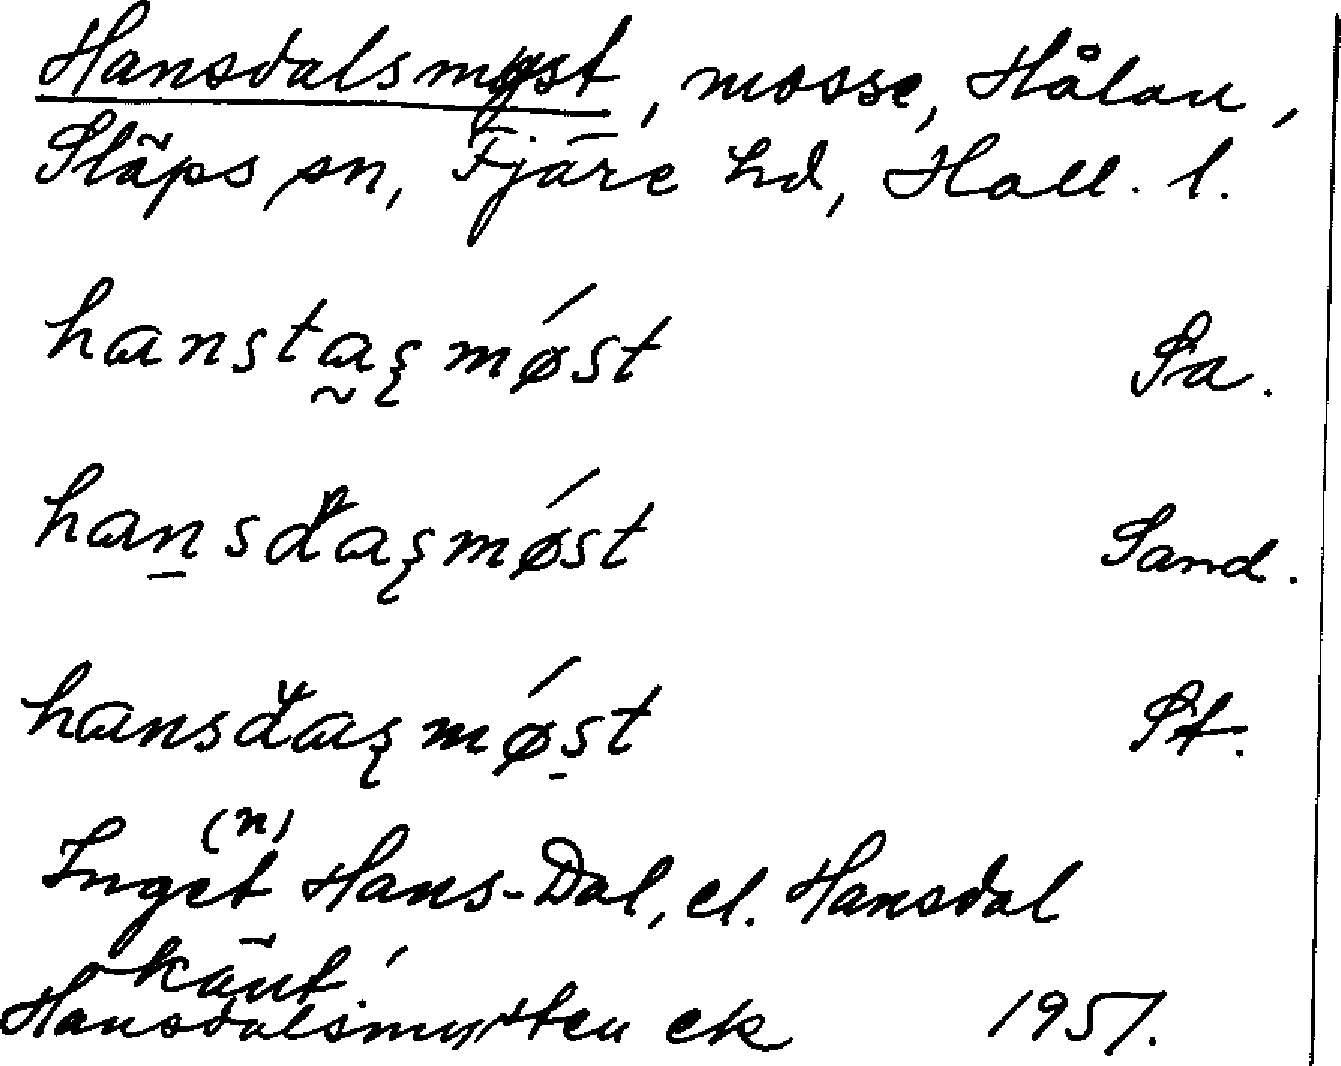 Hansdalsmyst, mosse, Hålan,
Släps sn, Fjäre hd, Hall. l.
hansta̰ʂmǿst Sa.
haṉsđaʂmǿst Sand.
hansďaʂmǿs̱t St.
(n)
Inget Hans-Dal, el. Hansdal
känt!
Hansdalsmysten ek 1951.